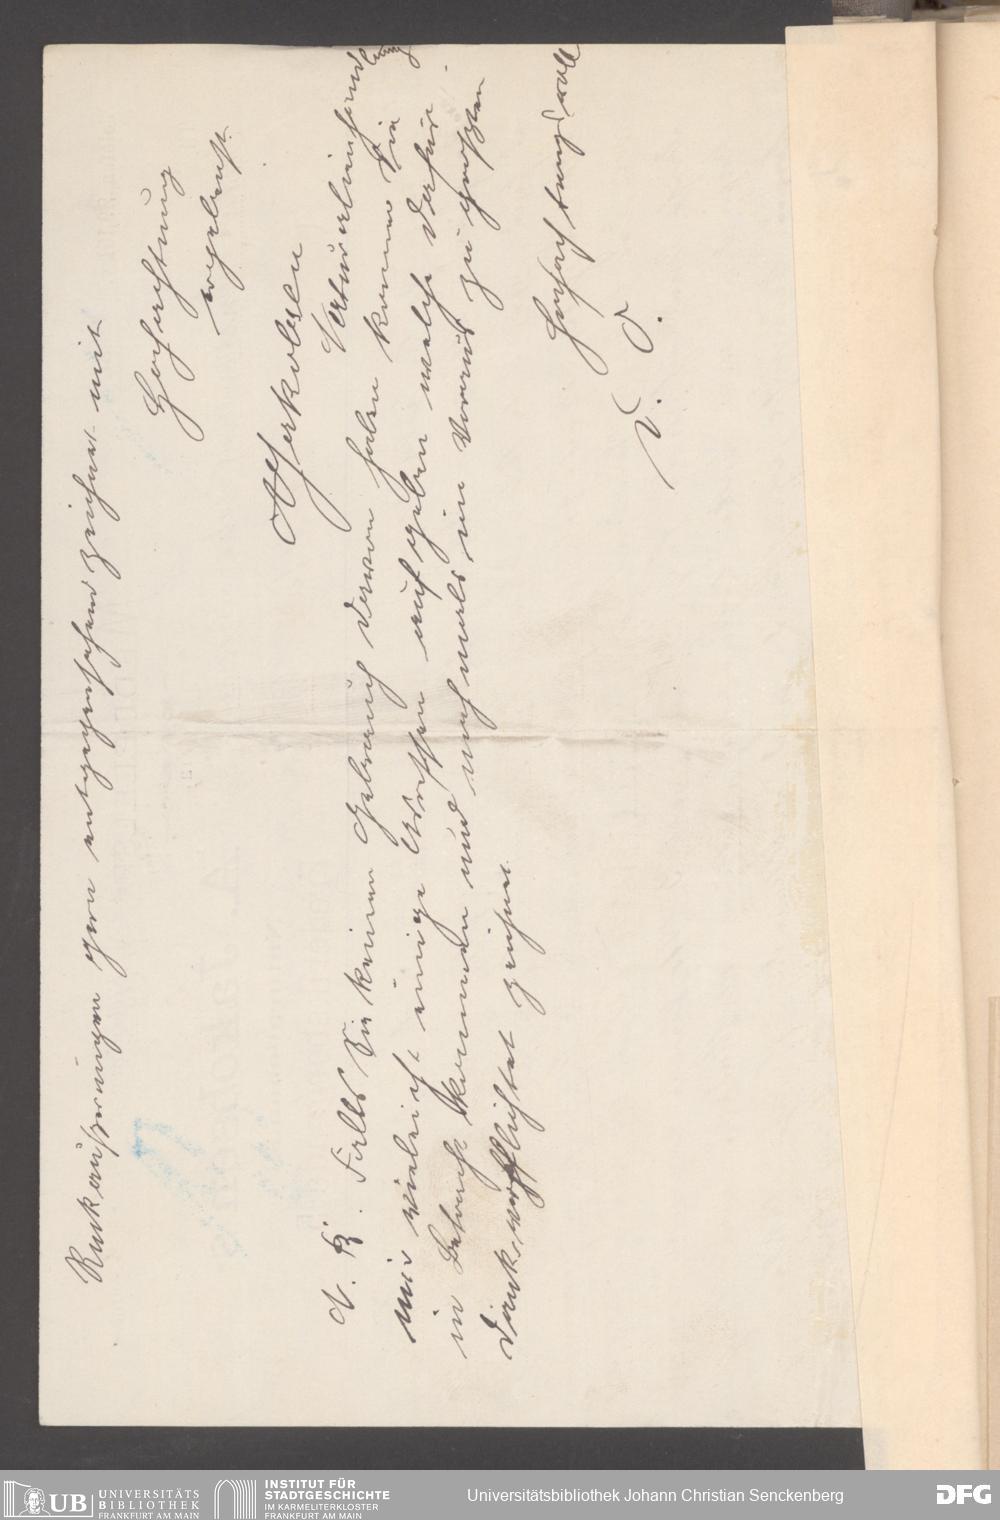 Rückäußerungen gern entgegensehend zeichnet mit
Hochachtung
ergebenst
A Jerkolsen
N. B. Falls Sie keinen Gebrauch davon haben können Sie
mir vieleicht einige Adressen aufgeben welche dafür
in Betracht kommen und nochmals im Voraus zu größten
Dank verpflichtet zeichnet
Hochachtungsvoll
D. O.
UB UNIVERSITÄTS
BIBLIOTHEK
FRANKFURT AM MAIN
INSTITUT FÜR
STADTGESCHICHTE
IM KARMELITERKLOSTER
FRANKFURT AM MAIN
Universitätsbibliothek Johann Christian Senckenberg
DFG